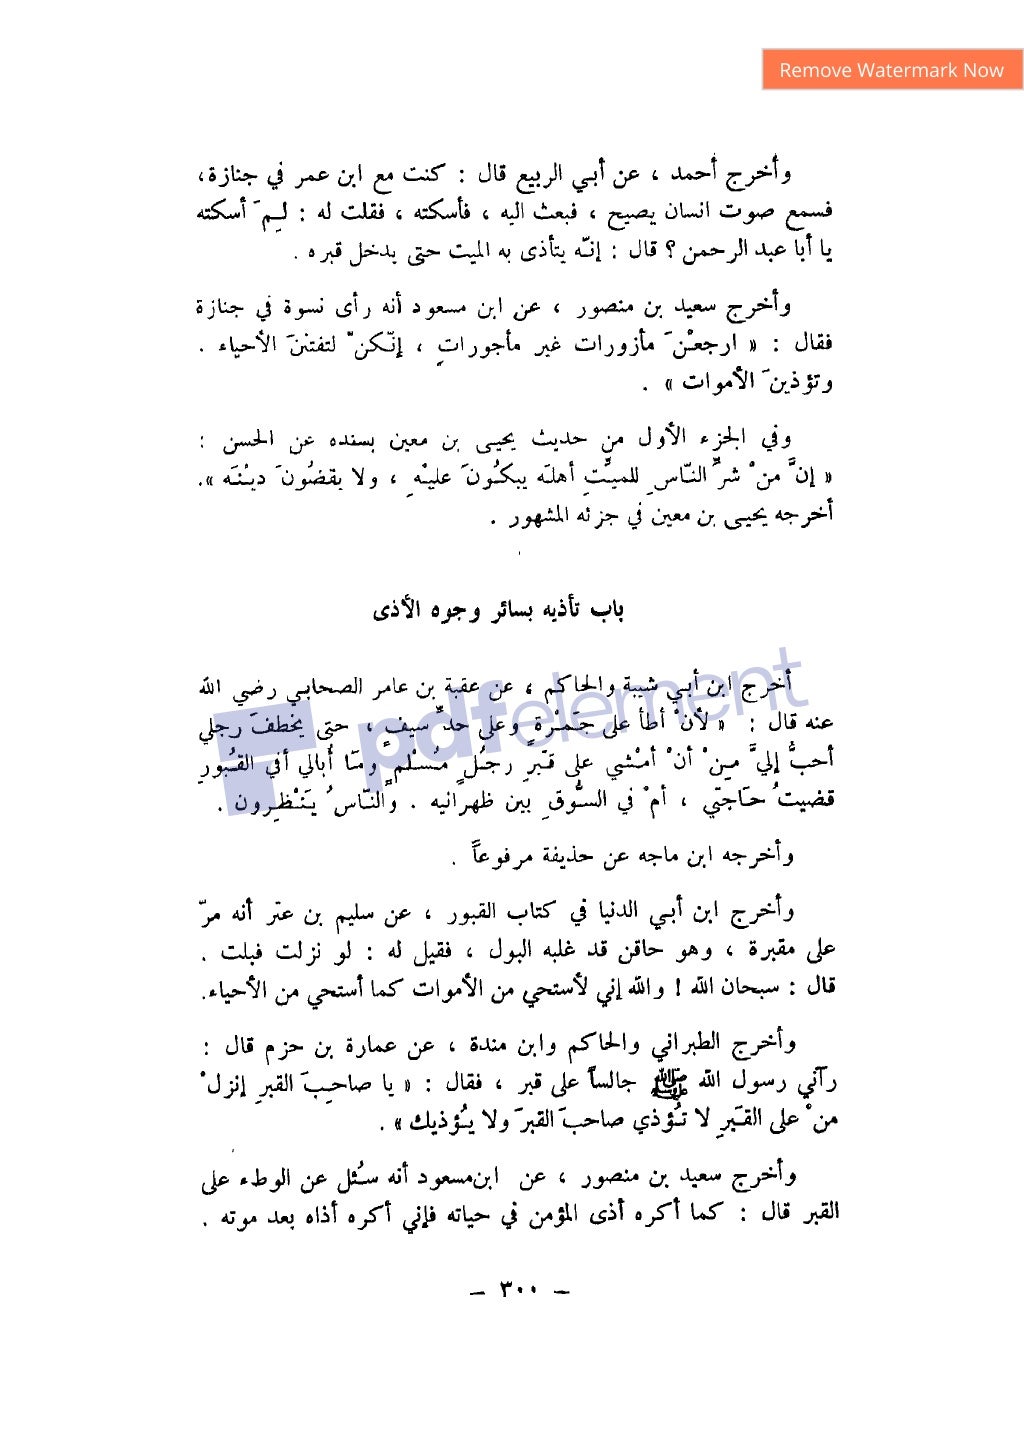 Remove Watermark Now
وأخرج أحمد ، عن أبي الربيع قال : كنت مع ابن عمر في جنازة،
فسمع صوت انسان يصيح ، فبعث اليه ، فأسكته ، فقلت له : لِمَ أسكته
يا أبا عبد الرحمن ؟ قال : إنّه يتأذى به الميت حتى يدخل قبره .
وأخرج سعيد بن منصور ، عن ابن مسعود أنه رأى نسوة في جنازة
فقال : « ارجعْنَ مأزورات غير مأجوراتٍ ، إنّكنّ لتفتنّ الأحياء .
وتؤذينَ الأموات » .
وفي الجزء الأول من حديث يحيى بن معين بسنده عن الحسن :
« إنَّ منْ شرِّ النّاسِ للميّتِ أهلَه يبكُونَ عليْهِ ، ولا يقضُونَ ديْنَه ».
أخرجه يحيى بن معين في جزئه المشهور .
باب تأذيه بسائر وجوه الأذى
أخرج ابن أبي شيبة والحاكم ، عن عقبة بن عامر الصحابي رضي الله
عنه قال : « لأنْ أطأ على جَمْرْةٍ وعلى حدِّ سيفٍ ، حتى يخطفَ رجلي
أحبُّ إليَّ مِنْ أنْ أمْشي على قَبْرِ رجُلٍ مُسْلمٍ ومَا أُبالي أفي القُبُورِ
قضيتُ حَاجتي ، أمْ في السُّوقِ بين ظهرانيه . والنّاسُ يَنْظِرون .
وأخرجه ابن ماجه عن حذيفة مرفوعاً .
وأخرج ابن أبي الدنيا في كتاب القبور ، عن سليم بن عتر أنه مرّ
على مقبرة ، وهو حاقن قد غلبه البول ، فقيل له : لو نزلت فبلت .
قال : سبحان الله ! والله إني لأستحي من الأموات كما أستحي من الأحياء.
وأخرج الطبراني والحاكم وابن مندة ، عن عمارة بن حزم قال :
رآني رسول الله ﷺ جالساً على قبر ، فقال : « يا صاحِبَ القبرِ إنزلْ
منْ على القَبرِ لا تُؤذي صاحبَ القبرَ ولا يُؤذيك » .
وأخرج سعيد بن منصور ، عن ابن مسعود أنه سُئل عن الوطء على
القبر قال : كما أكره أذى المؤمن في حياته فإني أكره أذاه بعد موته .
– ٣٠٠ –
pdfelement